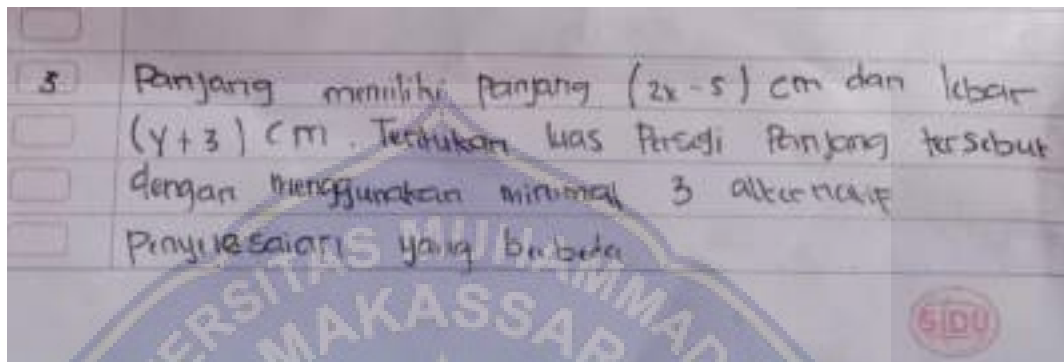 3 Panjang memiliki Panjang (2x - 5) cm dan lebar
(y + 3) cm. Tentukan luas Persegi Panjang tersebut
dengan menggunakan minimal 3 alternatif
Penyelesaian yang berbeda
ERSITAS MUHAMMAD
MAKASSAR
SIDU